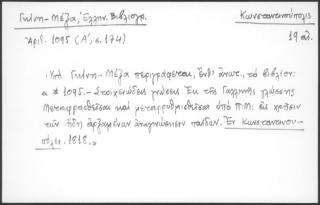 Γκίνη - Μέξα, Ἑλλην. Βιβλιογρ. Κωνσταντινούπολις
Ἀριθ. 1095 (Α', σ. 174) 19 αἰ.
Ὑπὸ Γκίνη - Μέξα περιγράφεται, ἔνθ' ἀνωτ., τὸ βιβλίον:
« * 1095. - Στοιχειώδεις γνώσεις Ἐκ τῆς Γαλλικῆς γλώσσης
Μεταφρασθεῖσαι καὶ μεταρρυθμισθεῖσαι ὑπὸ Π.Μ: εἰς χρῆσιν
τῶν ἤδη ἀρξαμένων ἀναγινώσκειν παίδων. Ἐν Κωνσταντινου-
πόλει. 1818. »